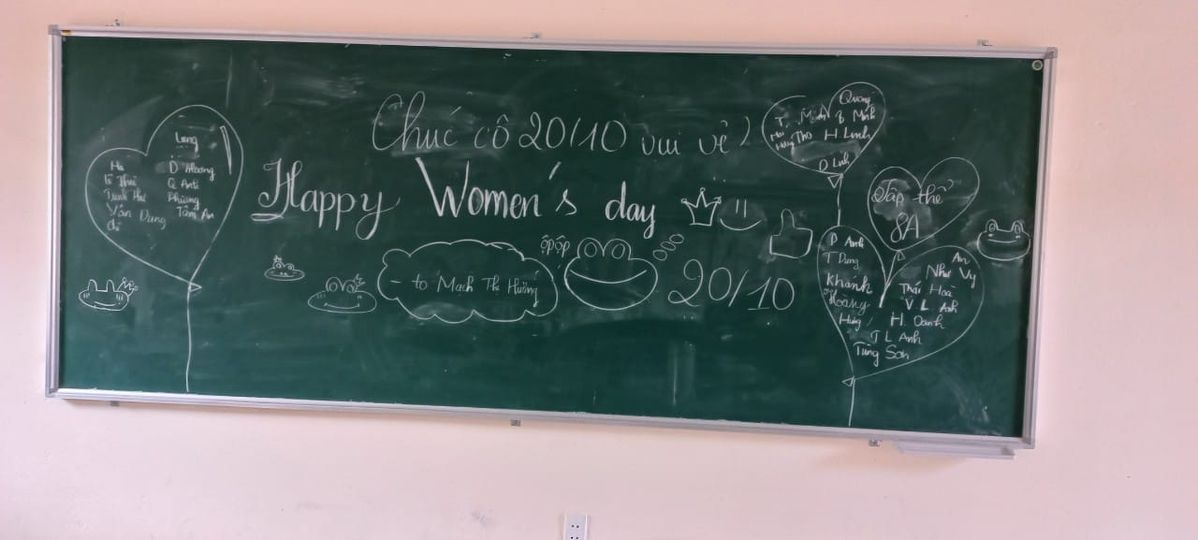 Chúc cô 20/10 vui vẻ!
Happy Women's day
ộp ộp
- to Mạch Thị Hường
20/10
Long
Hà Đ Hoàng
Q Anh
Phương
Vân Dung Tâm An
Quang
T. Minh B Minh
Thơ H Linh
D Linh
Tập thể
8A
D Anh
T Dung
Khánh
Hoàng
Hưng
An
Như Vy
Thái Hoà
V L Anh
H. Oanh
T L Anh
Tùng Sơn